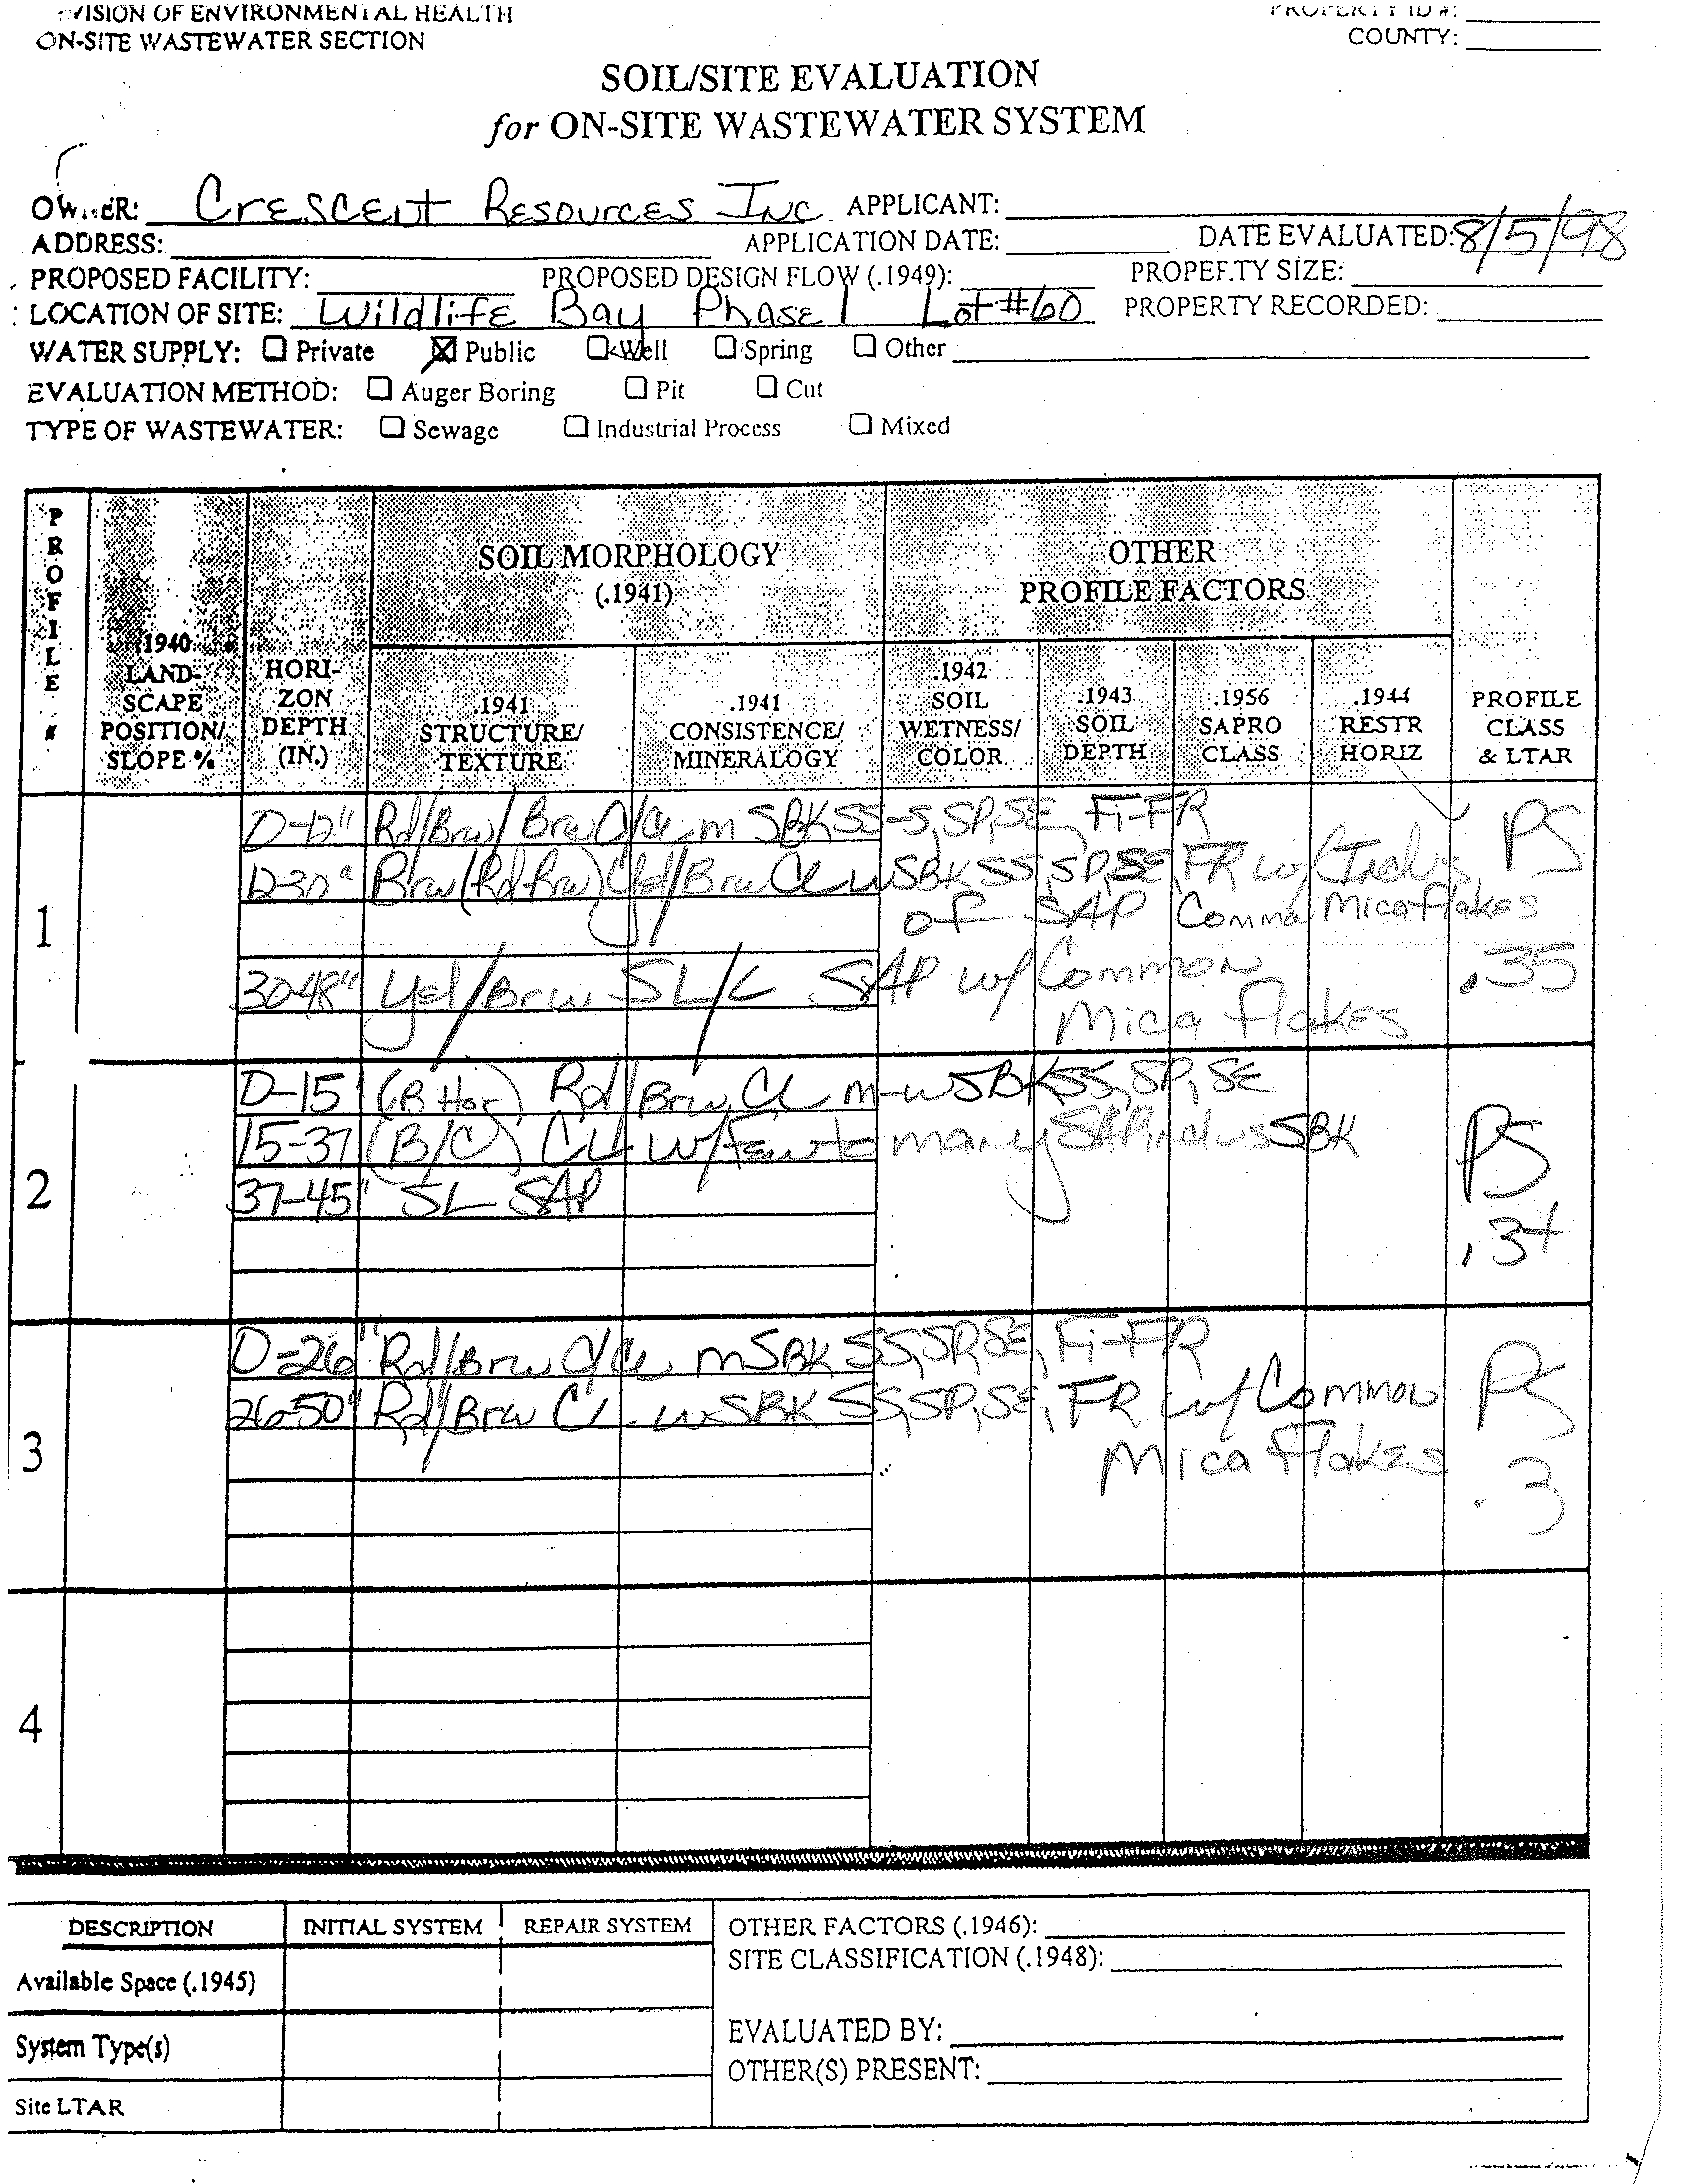 VISION OF ENVIRONMENTAL HEALTH
PROPERTY ID #:
ON-SITE WASTEWATER SECTION
COUNTY:
SOIL/SITE EVALUATION
for ON-SITE WASTEWATER SYSTEM
OWNER: Crescent Resources Inc APPLICANT:
ADDRESS: APPLICATION DATE: DATE EVALUATED: 8/5/98
PROPOSED FACILITY: PROPOSED DESIGN FLOW (.1949): PROPERTY SIZE:
LOCATION OF SITE: Wildlife Bay Phase 1 Lot #60 PROPERTY RECORDED:
WATER SUPPLY: ☐ Private ☒ Public ☐ Well ☐ Spring ☐ Other
EVALUATION METHOD: ☐ Auger Boring ☐ Pit ☐ Cut
TYPE OF WASTEWATER: ☐ Sewage ☐ Industrial Process ☐ Mixed
PROFILE #
.1940 LAND-SCAPE POSITION/ SLOPE %
HORI-ZON DEPTH (IN.)
SOIL MORPHOLOGY
(.1941)
OTHER
PROFILE FACTORS
.1941 STRUCTURE/ TEXTURE
.1941 CONSISTENCE/ MINERALOGY
.1942 SOIL WETNESS/ COLOR
.1943 SOIL DEPTH
.1956 SAPRO CLASS
.1944 RESTR HORIZ
PROFILE CLASS & LTAR
1
0-12" Rd/Brw/Brw C/CL m SBK SS-S, SP, SE, Fi-FR
12-30" Brw (Rd Brw) Yel/Brw CL w SBK SS, SP, SE, FR w/ Inclus
of SAP Common Mica flakes
PS
30-48" Yel/Brw SL/L SAP w/ Common
Mica flakes
.35
2
0-15" (B Hor) Rd/Brw CL m-w SBK SS, SP, SE
15-37 (B/C) CL w/ Few to many SAP inclus SBK
37-45" SL SAP
PS
.3+
3
0-26" Rd/Brw C/CL m SBK SS, SP, SE, Fi-FR
26-50" Rd/Brw CL w SBK SS, SP, SE, FR w/ Common
Mica flakes
PS
.3
4
DESCRIPTION INITIAL SYSTEM REPAIR SYSTEM
Available Space (.1945)
System Type(s)
Site LTAR
OTHER FACTORS (.1946):
SITE CLASSIFICATION (.1948):
EVALUATED BY:
OTHER(S) PRESENT: